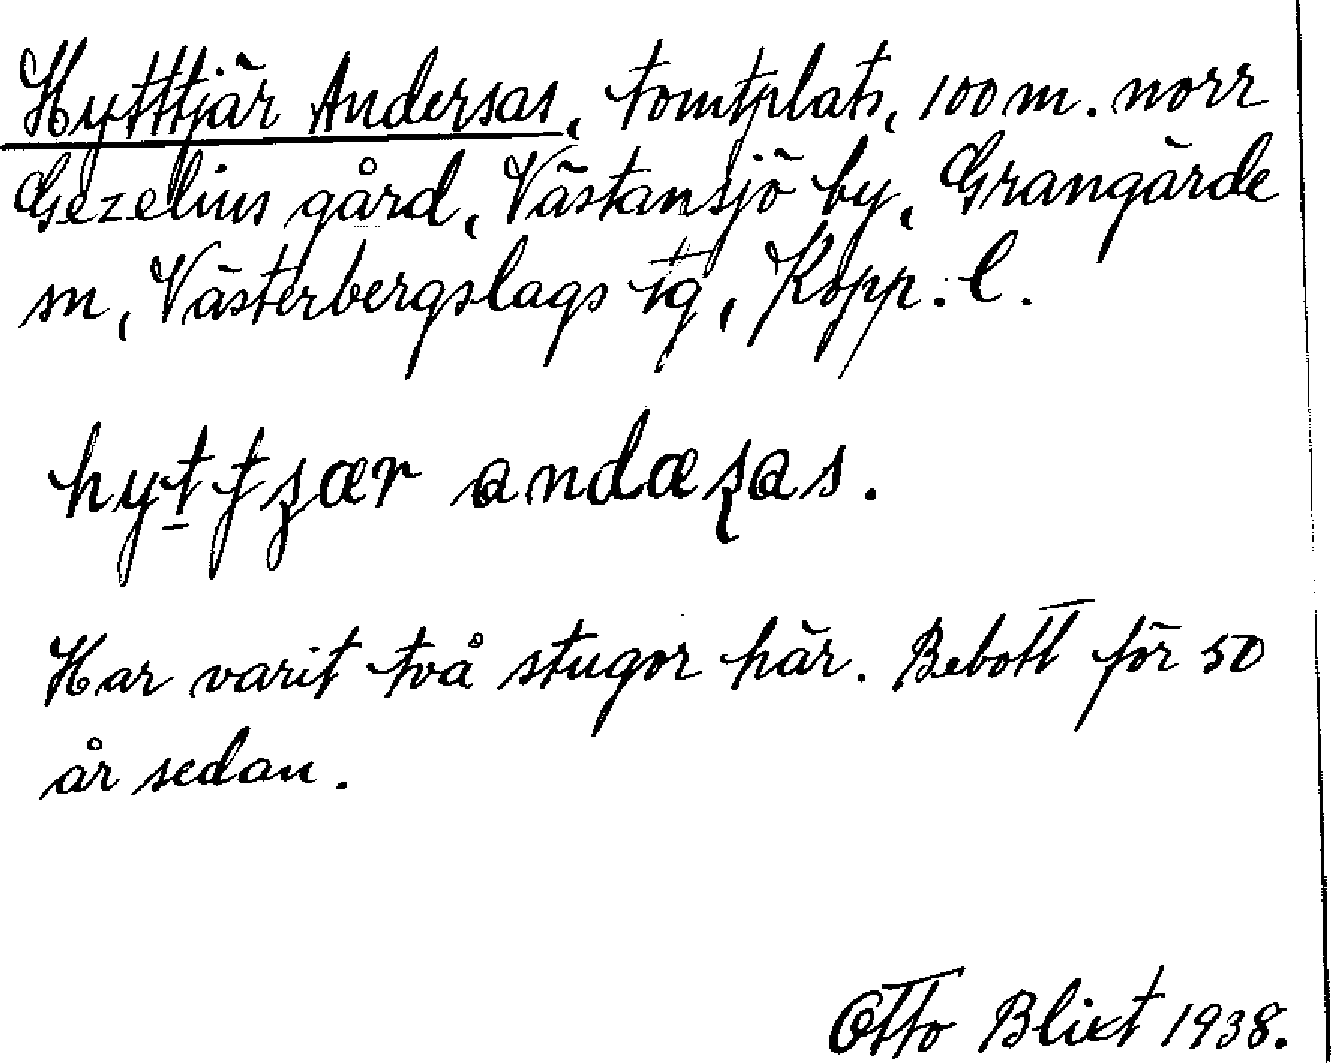 Hytttjär Andersas, tomtplats, 100 m. norr
Gezelius gård, Västansjö by, Grangärde
sn, Västerbergslags tg, Kopp. l.
andæʂas.
Har varit två stugor här. Bebott för 50
år sedan.
Otto Blixt 1938.